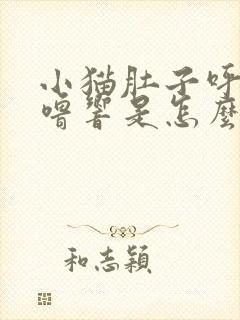 小猫肚子呼
噜響是怎麼
和志穎